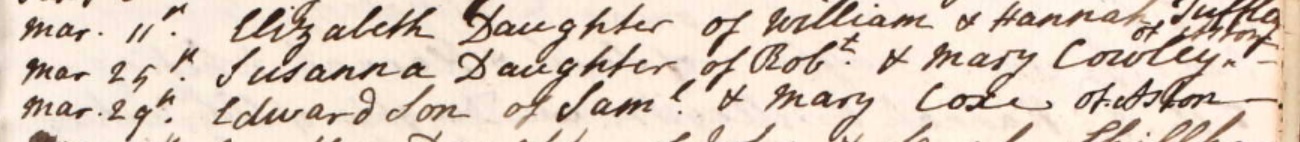 Mar. 11th. Elizabeth Daughter of William & Hannah
of Aston
Mar 25th. Susanna Daughter of Robt. & Mary Cowley
Mar. 29th. Edward Son of Saml. & Mary Coxe of Aston